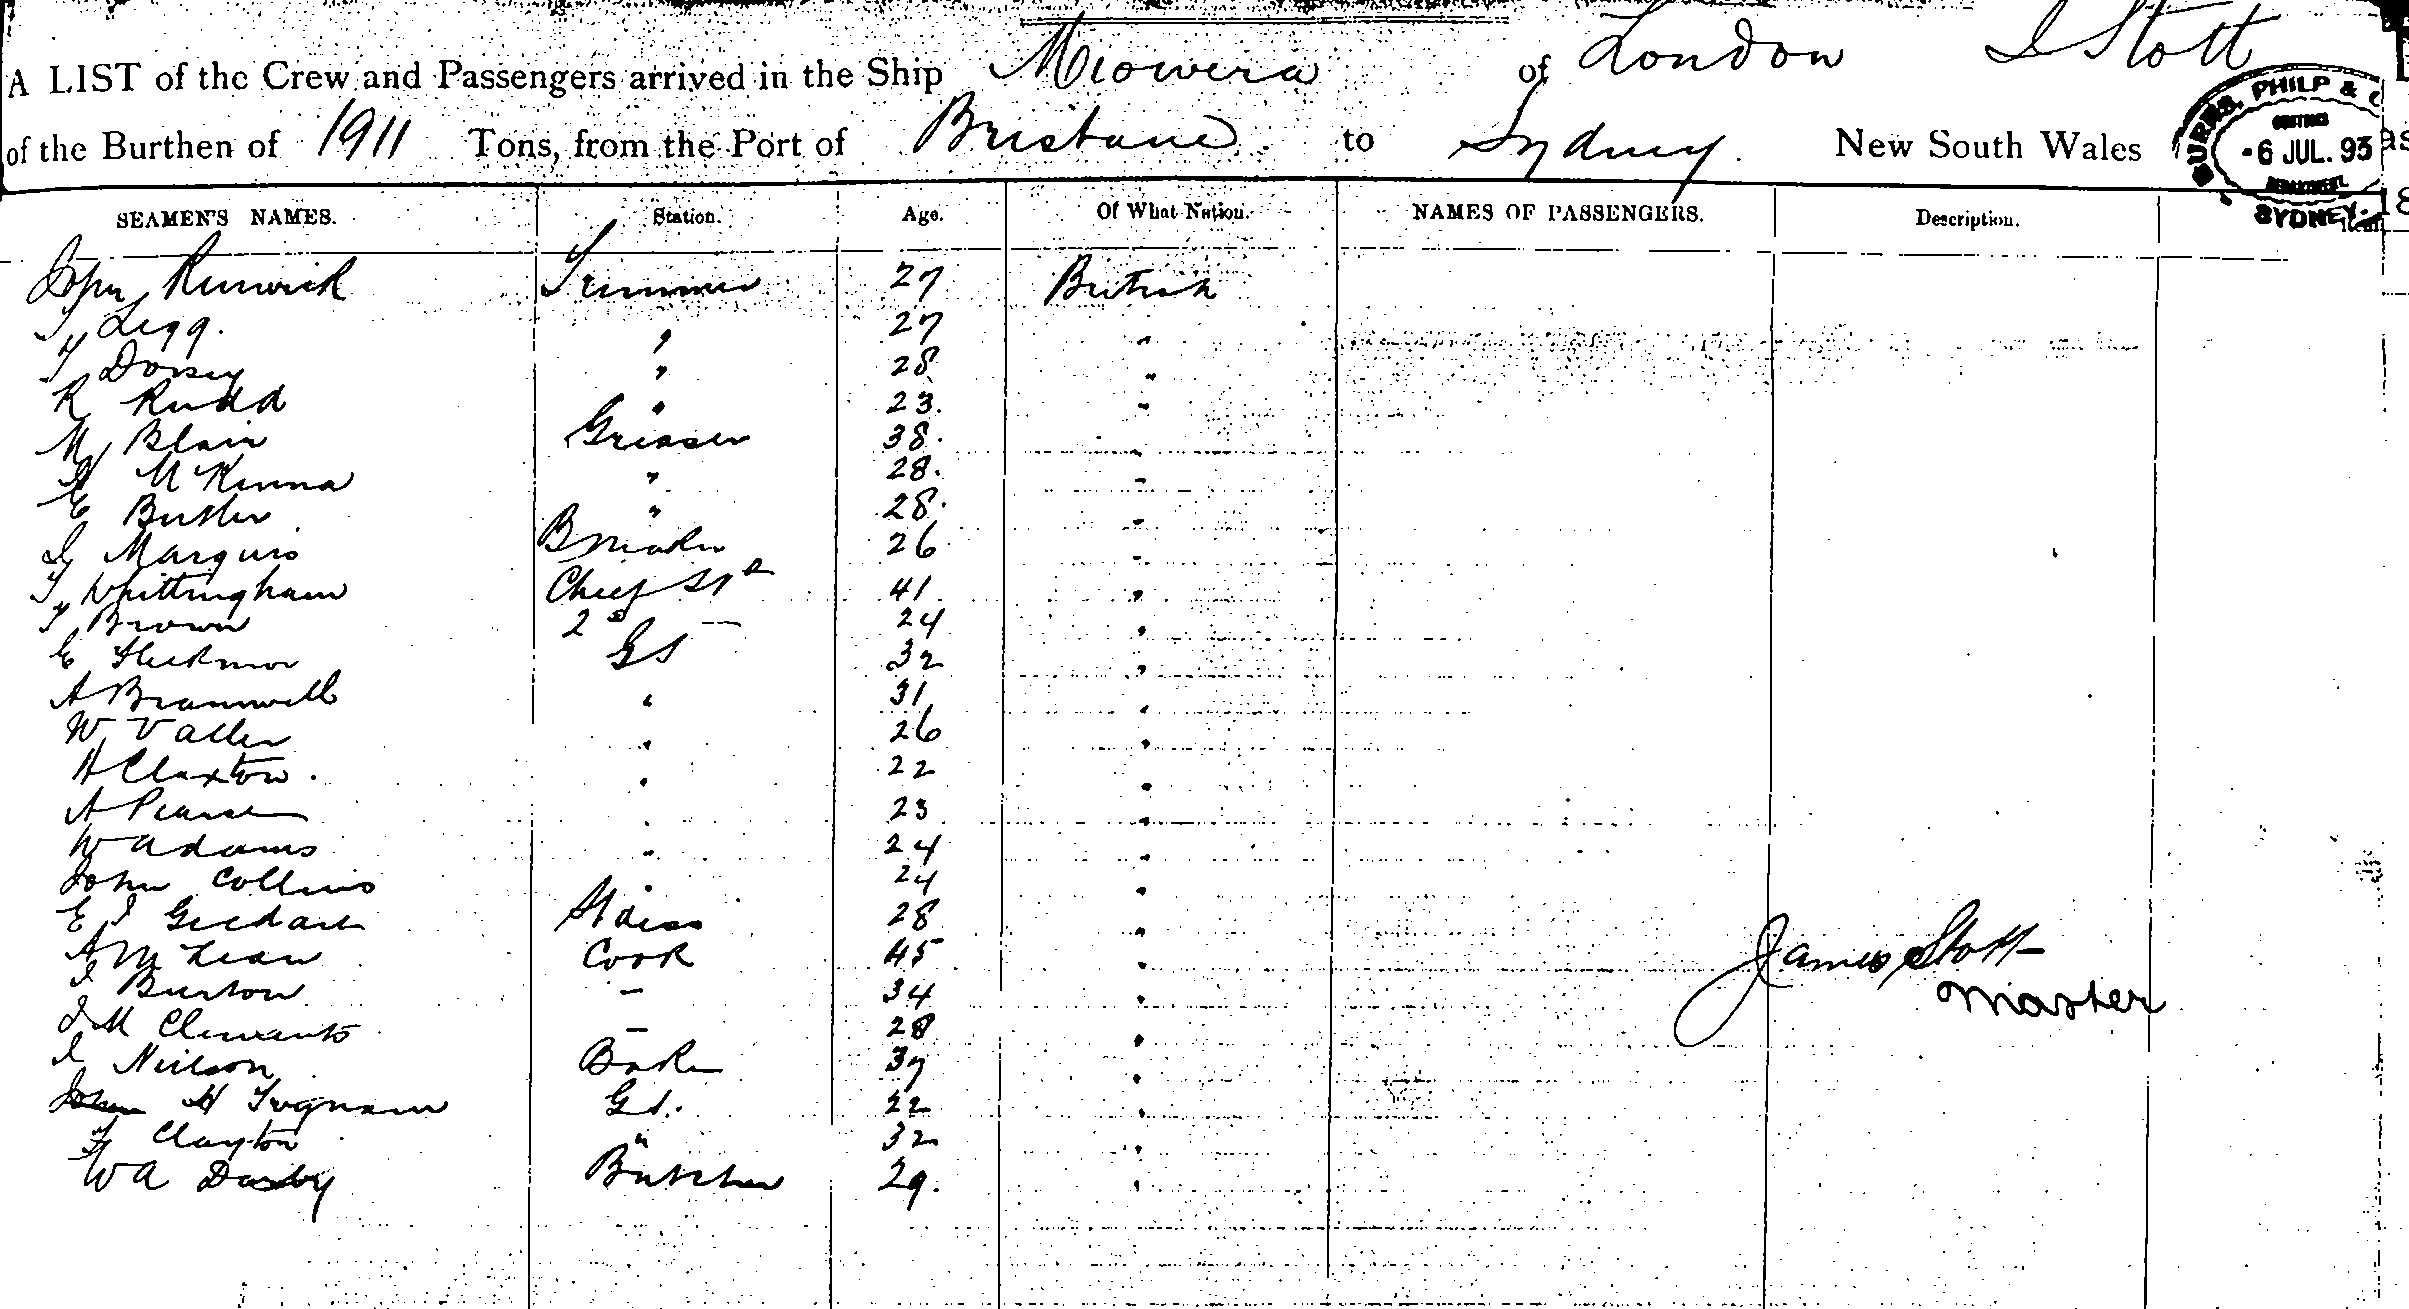 A LIST of the Crew and Passengers arrived in the Ship Miowera of London J Stott
of the Burthen of 1911 Tons, from the Port of Brisbane to Sydney New South Wales
BURNS, PHILP & 
-6 JUL. 93
DEPARTMENT
SYDNEY.
SEAMEN'S NAMES. Station. Age. Of What Nation. NAMES OF PASSENGERS. Description.
John Renwick Trimmer 27 British
T Legg. " 27 "
T Dorsey " 28 "
R Rudd " 23. "
M Blair Greaser 38. "
McKenna " 28. "
E Butler " 28. "
J Marquis 26 "
T Whittingham Chief Std 41 "
T Brown 2d — 24 "
E GS 32 "
A Bramwell " 31 "
W Valler " 26 "
H Claxton. " 22 "
A Pearse " 23 "
W Adams " 24 "
John Collins " 24 "
E J Stdess 28 "
A McLean Cook 45 "
J Burton — 34 "
J M Clements — 28 "
J Neilson Baker 37 "
H GS. 22 "
F Clayton " 32 "
W A Darby Butcher 29. "
James Stott
Master